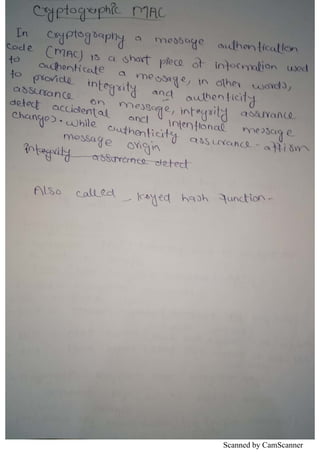 Cryptographic MAC
In cryptography a message authentication
code (MAC) is a short piece of information used
to authenticate a message, in other words,
to provide integrity and authenticity
assurance on message, integrity assurance
detect accidental and intentional message
changes. while authenticity assurance - affism
message origin
Integrity assurance detect
Also called _ keyed hash function -
Scanned by CamScanner